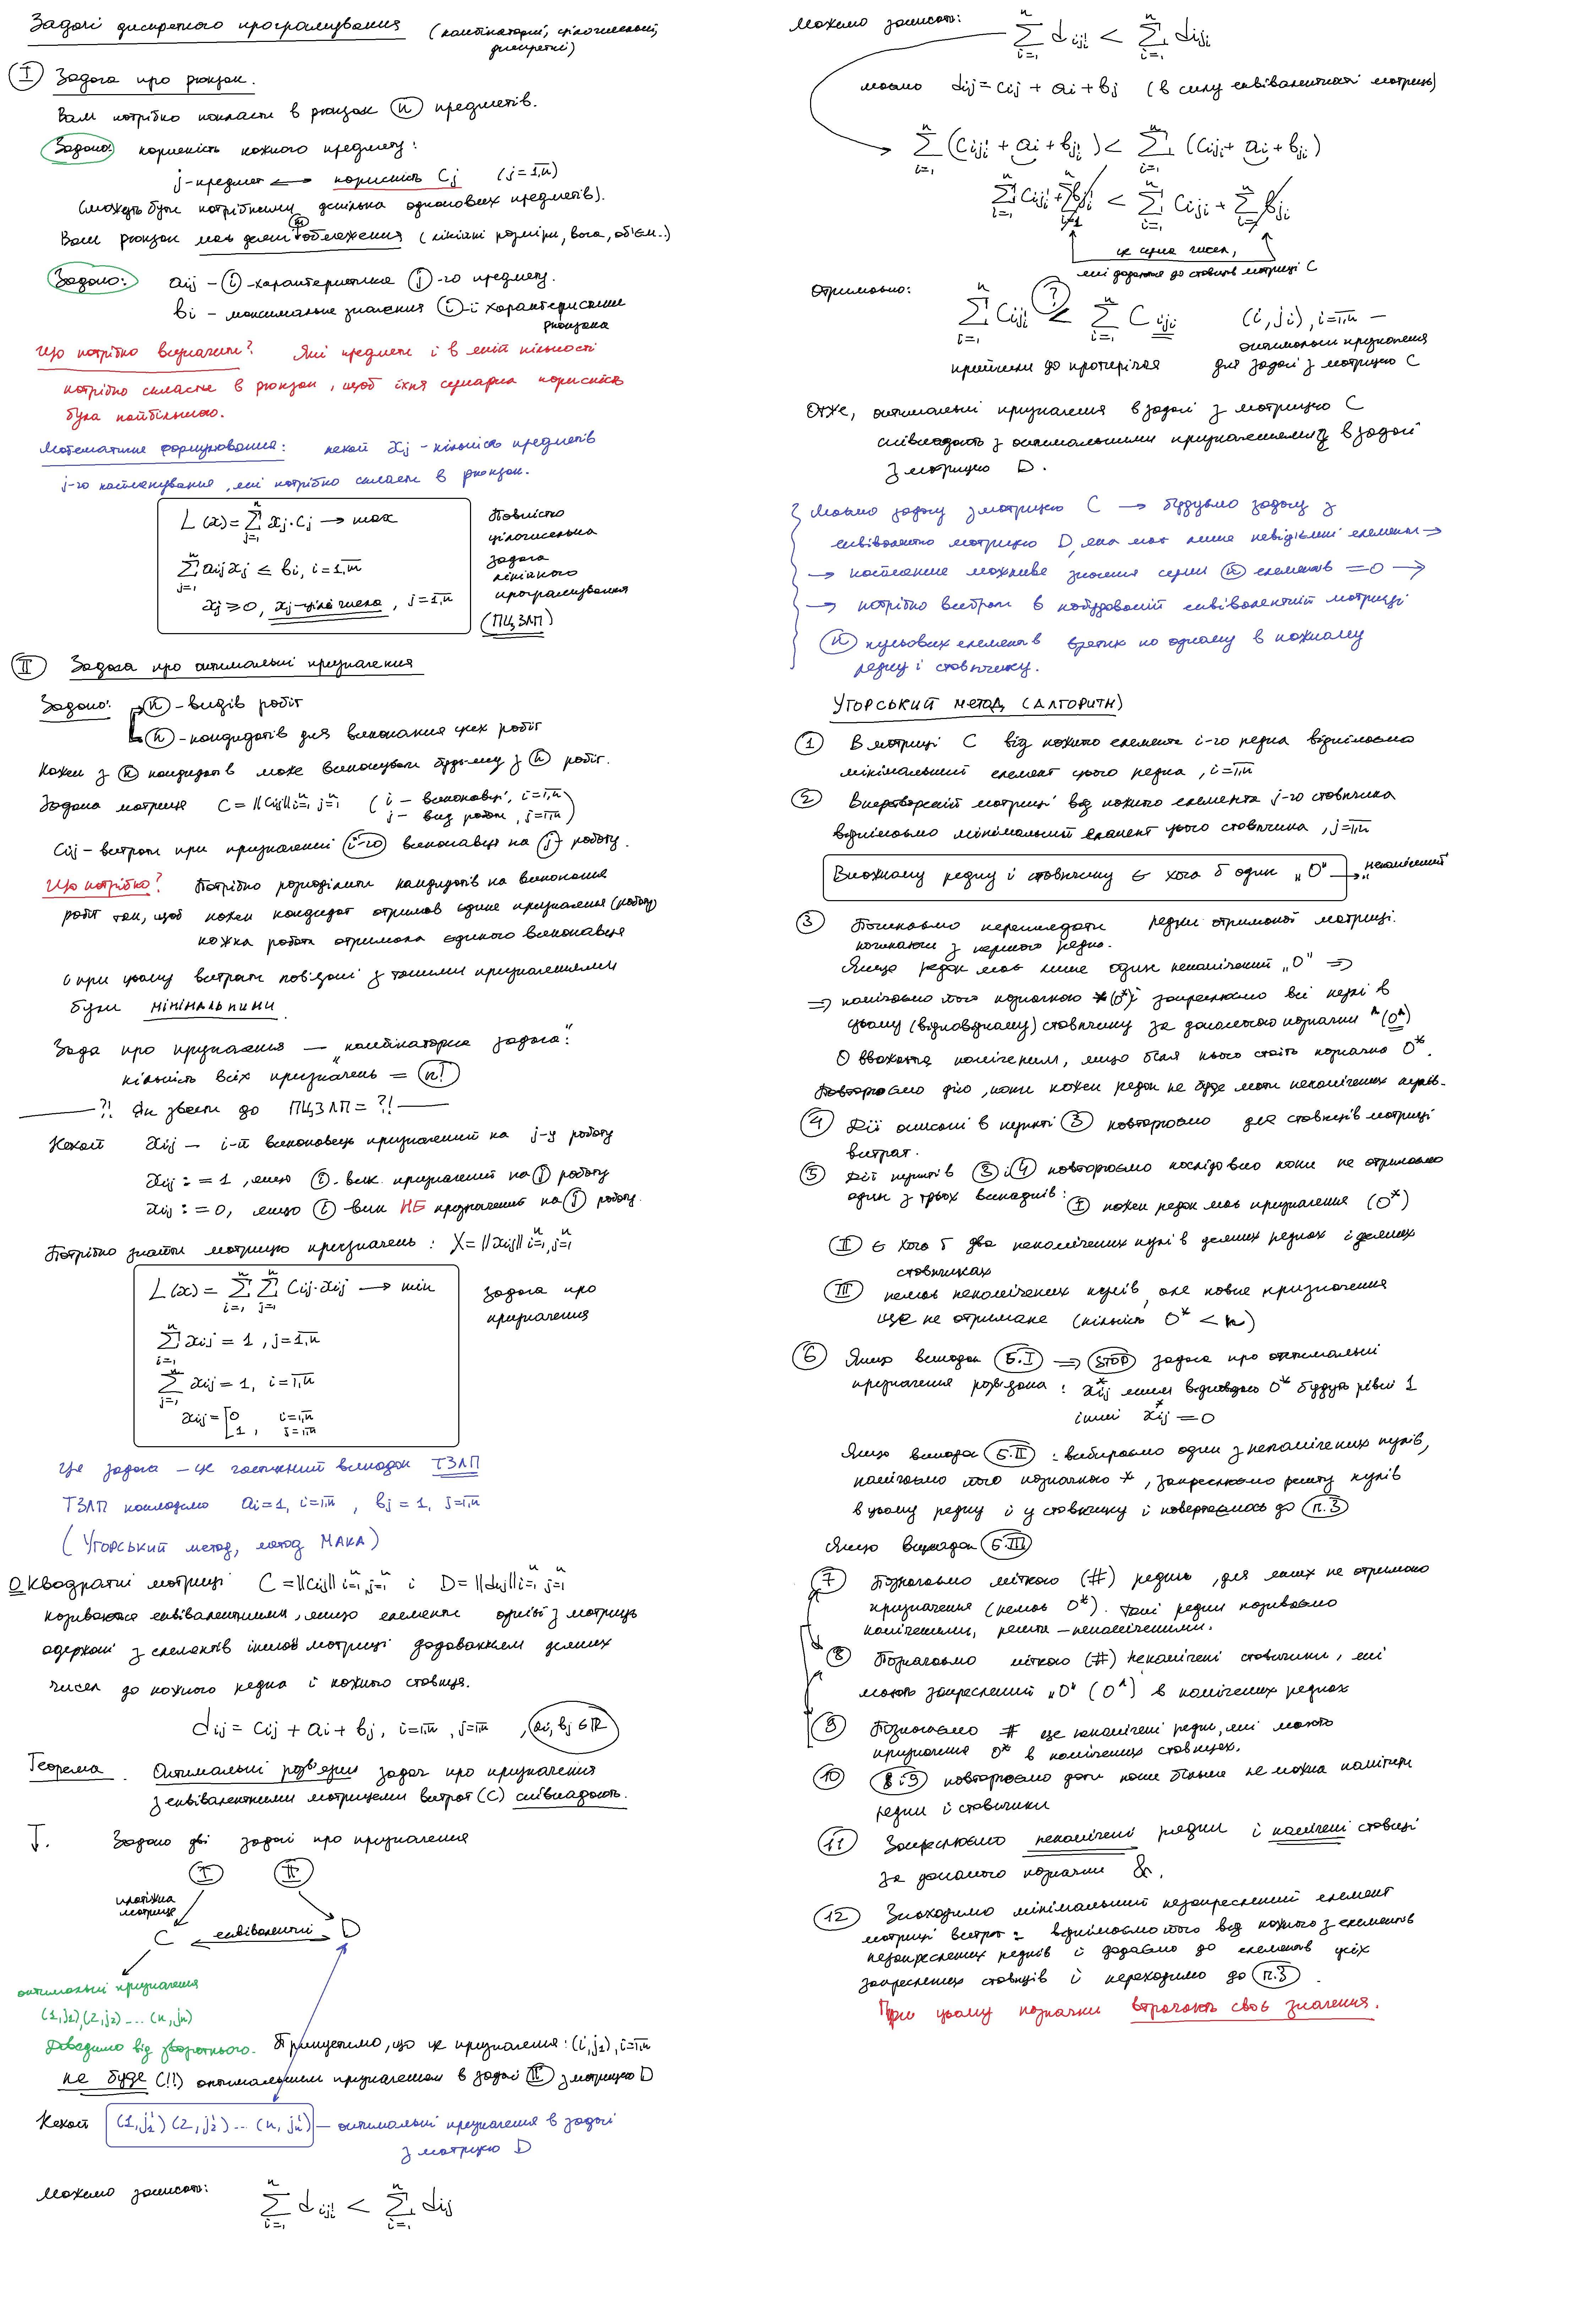 Задачі дискретного програмування (комбінаторні, цілочисельні, дискретні)
I Задача про рюкзак.
Вам потрібно покласти в рюкзак n предметів.
Задано: корисність кожного предмету:
j-предмет ⟷ корисність Cj (j=1,n)
(можуть бути потрібними декілька однакових предметів).
Ваш рюкзак має деякі обмеження (лінійні розміри, вага, об'єм..)
Задано: aij – i-характеристика j-го предмету.
bi – максимальне значення i-ї характеристики рюкзака
Що потрібно визначити? Які предмети і в якій кількості
потрібно скласти в рюкзак, щоб їхня сумарна корисність
була найбільшою.
Математичне формулювання: нехай xj – кількість предметів
j-го найменування, які потрібно скласти в рюкзак.
L(x) = Σ xj·Cj → max
Σ aij xj ≤ bi, i=1,n
xj ≥ 0, xj-цілі числа, j=1,n
Повністю
цілочисельна
задача
лінійного
програмування
(ПЦЗЛП)
II Задача про оптимальні призначення
Задано: n – видів робіт
n – кандидатів для виконання цих робіт
Кожен з n кандидатів може виконувати будь-яку з n робіт.
Задана матриця C = ||cij|| i=1, j=1 (i – виконавці, i=1,n
j – вид роботи, j=1,n)
Cij – витрати при призначенні i-го виконавця на j роботу.
Що потрібно? Потрібно розподілити кандидатів на виконання
робіт так, щоб кожен кандидат отримав єдине призначення (роботу)
кожна робота отримала єдиного виконавця
і при цьому витрати пов'язані з такими призначеннями
були мінімальними
Задача про призначення — "комбінаторна задача":
кількість всіх призначень = n!
?! Як звести до ПЦЗЛП = ?!
Нехай xij – i-й виконавець призначений на j-у роботу
xij := 1, якщо i-вик. призначений на j роботу
xij := 0, якщо i вик НЕ призначений на j роботу.
Потрібно знайти матрицю призначень: X = ||xij|| i=1, j=1
L(x) = Σ Σ Cij·xij → min
Σ xij = 1, j=1,n
Σ xij = 1, i=1,n
xij = [0 i=1,n
1, j=1,n
задача про
призначення
Це задача – це частинний випадок ТЗЛП
ТЗЛП покладемо ai=1, i=1,n, bj=1, j=1,n
(Угорський метод, метод МАКА)
О Квадратні матриці C = ||cij|| i=1, j=1 і D = ||dij|| i=1, j=1
називаються еквівалентними, якщо елементи однієї з матриць
одержані з елементів іншої матриці додаванням деяких
чисел до кожного рядка і кожного стовпця.
dij = cij + ai + bj, i=1,n, j=1,n, ai, bj ∈ R
Теорема. Оптимальні розв'язки задач про призначення
з еквівалентними матрицями витрат (C) співпадають.
Т. Задано дві задачі про призначення
I II
платіжна
матриця
C ⟷ еквівалентні D
оптимальні призначення
(1,j1)(2,j2)....(n,jn)
Доведемо від зворотнього. Припустимо, що це призначення: (i,ji), i=1,n
не буде (!!) оптимальним призначенням в задачі II з матрицею D
Нехай (1,j1')(2,j2')...(n,jn') – оптимальні призначення в задачі
з матрицею D
Можемо записати: Σ diji' < Σ dij
Можемо записати: Σ diji' < Σ diji
маємо dij = cij + ai + bj (в силу еквівалентності матриць)
Σ (Ciji' + ai + bji') < Σ (Ciji + ai + bji)
Σ Ciji' + Σ bji' < Σ Ciji + Σ bji
це сума чисел,
які додаються до стовпців матриці C
Отримаємо: Σ Ciji' < Σ Ciji ? (i,ji), i=1,n –
оптимальні призначення
прийшли до протиріччя для задачі з матрицею C
Отже, оптимальні призначення в задачі з матрицею C
співпадають з оптимальними призначеннями в задачі
з матрицею D.
Маємо задачу з матрицею C → будуємо задачу з
еквівалентною матрицею D, яка має лише невід'ємні елементи →
→ найменше можливе значення суми n елементів = 0 →
→ потрібно вибрати в побудованій еквівалентній матриці
n нульових елементів взятих по одному в кожному
рядку і стовпчику.
УГОРСЬКИЙ МЕТОД (АЛГОРИТМ)
1 В матриці C від кожного елемента i-го рядка віднімаємо
мінімальний елемент цього рядка, i=1,n
2 В перетвореній матриці від кожного елемента j-го стовпчика
віднімаємо мінімальний елемент цього стовпчика, j=1,n
В кожному рядку і стовпчику є хоча б один "0" → непомічений
3 Починаємо переглядати рядки отриманої матриці.
починаючи з першого рядка.
Якщо рядок має лише один непомічений "0" ⇒
⇒ помічаємо його позначкою * (0*) і закреслюємо всі нулі в
цьому (відповідному) стовпчику за допомогою позначки ^ (0^)
0 вважається поміченим, якщо біля нього стоїть позначка 0*.
Повторюємо дію, поки кожен рядок не буде мати непомічених нулів.
4 Дії описані в пункті 3 повторюємо для стовпців матриці
витрат.
5 Дії пунктів 3 і 4 повторюємо послідовно поки не отримаємо
один з трьох випадків: I кожен рядок має призначення (0*)
II є хоча б два непомічених нулі в деяких рядках і деяких
стовпчиках
III немає непомічених нулів, але повне призначення
ще не отримане (кількість 0* < n)
6 Якщо випадок 5.I ⇒ STOP задача про оптимальні
призначення розв'язана: xij* яким відповідає 0* будуть рівні 1
інші xij* = 0
Якщо випадок 5.II: вибираємо один з непомічених нулів,
помічаємо його позначкою *, закреслюємо решту нулів
в цьому рядку і у стовпчику і повертаємось до п.3
Якщо випадок 5.III
7 Позначаємо міткою (#) рядки, для яких не отримано
призначення (немає 0*). Такі рядки називаємо
поміченими, решта – непоміченими.
8 Позначаємо міткою (#) непомічені стовпчики, які
мають закреслений "0" (0^) в помічених рядках
9 Позначаємо # ще непомічені рядки, які мають
призначення 0* в помічених стовпцях.
10 8 і 9 повторюємо доти поки більше не можна помітити
рядки і стовпчики
11 Закреслюємо непомічені рядки і помічені стовпці
за допомогою позначки &.
12 Знаходимо мінімальний незакреслений елемент
матриці витрат: віднімаємо його від кожного з елементів
незакреслених рядків і додаємо до елементів усіх
закреслених стовпців і переходимо до п.3.
При цьому позначки втрачають своє значення.